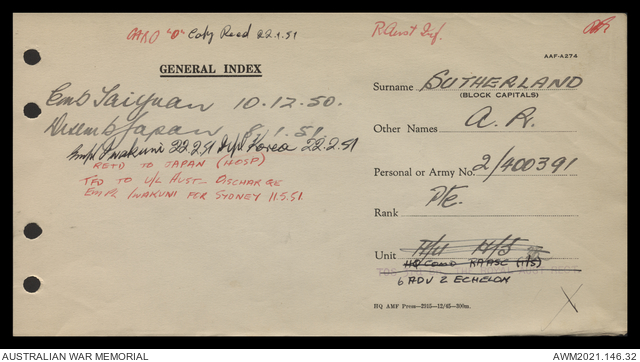 AARO "D" Copy Recd 22.1.51
R Aust Inf.
AAF-A274
GENERAL INDEX
Emb Taiyuan 10.12.50.
Disemb Japan 8.1.51.
Empl Iwakuni 22.2.51 D/pl Korea 22.2.51
RETD TO JAPAN (HOSP)
TFD TO U/L AUST DISCHARGE
EMPL IWAKUNI FOR SYDNEY 11.5.51
Surname SUTHERLAND
(BLOCK CAPITALS)
Other Names A. R.
Personal or Army No. 2/400391
Rank Pte.
Unit
HQ COMD RAASC (1/5)
6 ADV 2 ECHELON
HQ AMF Press—2915—12/45—300m.
X
AUSTRALIAN WAR MEMORIAL
AWM2021.146.32